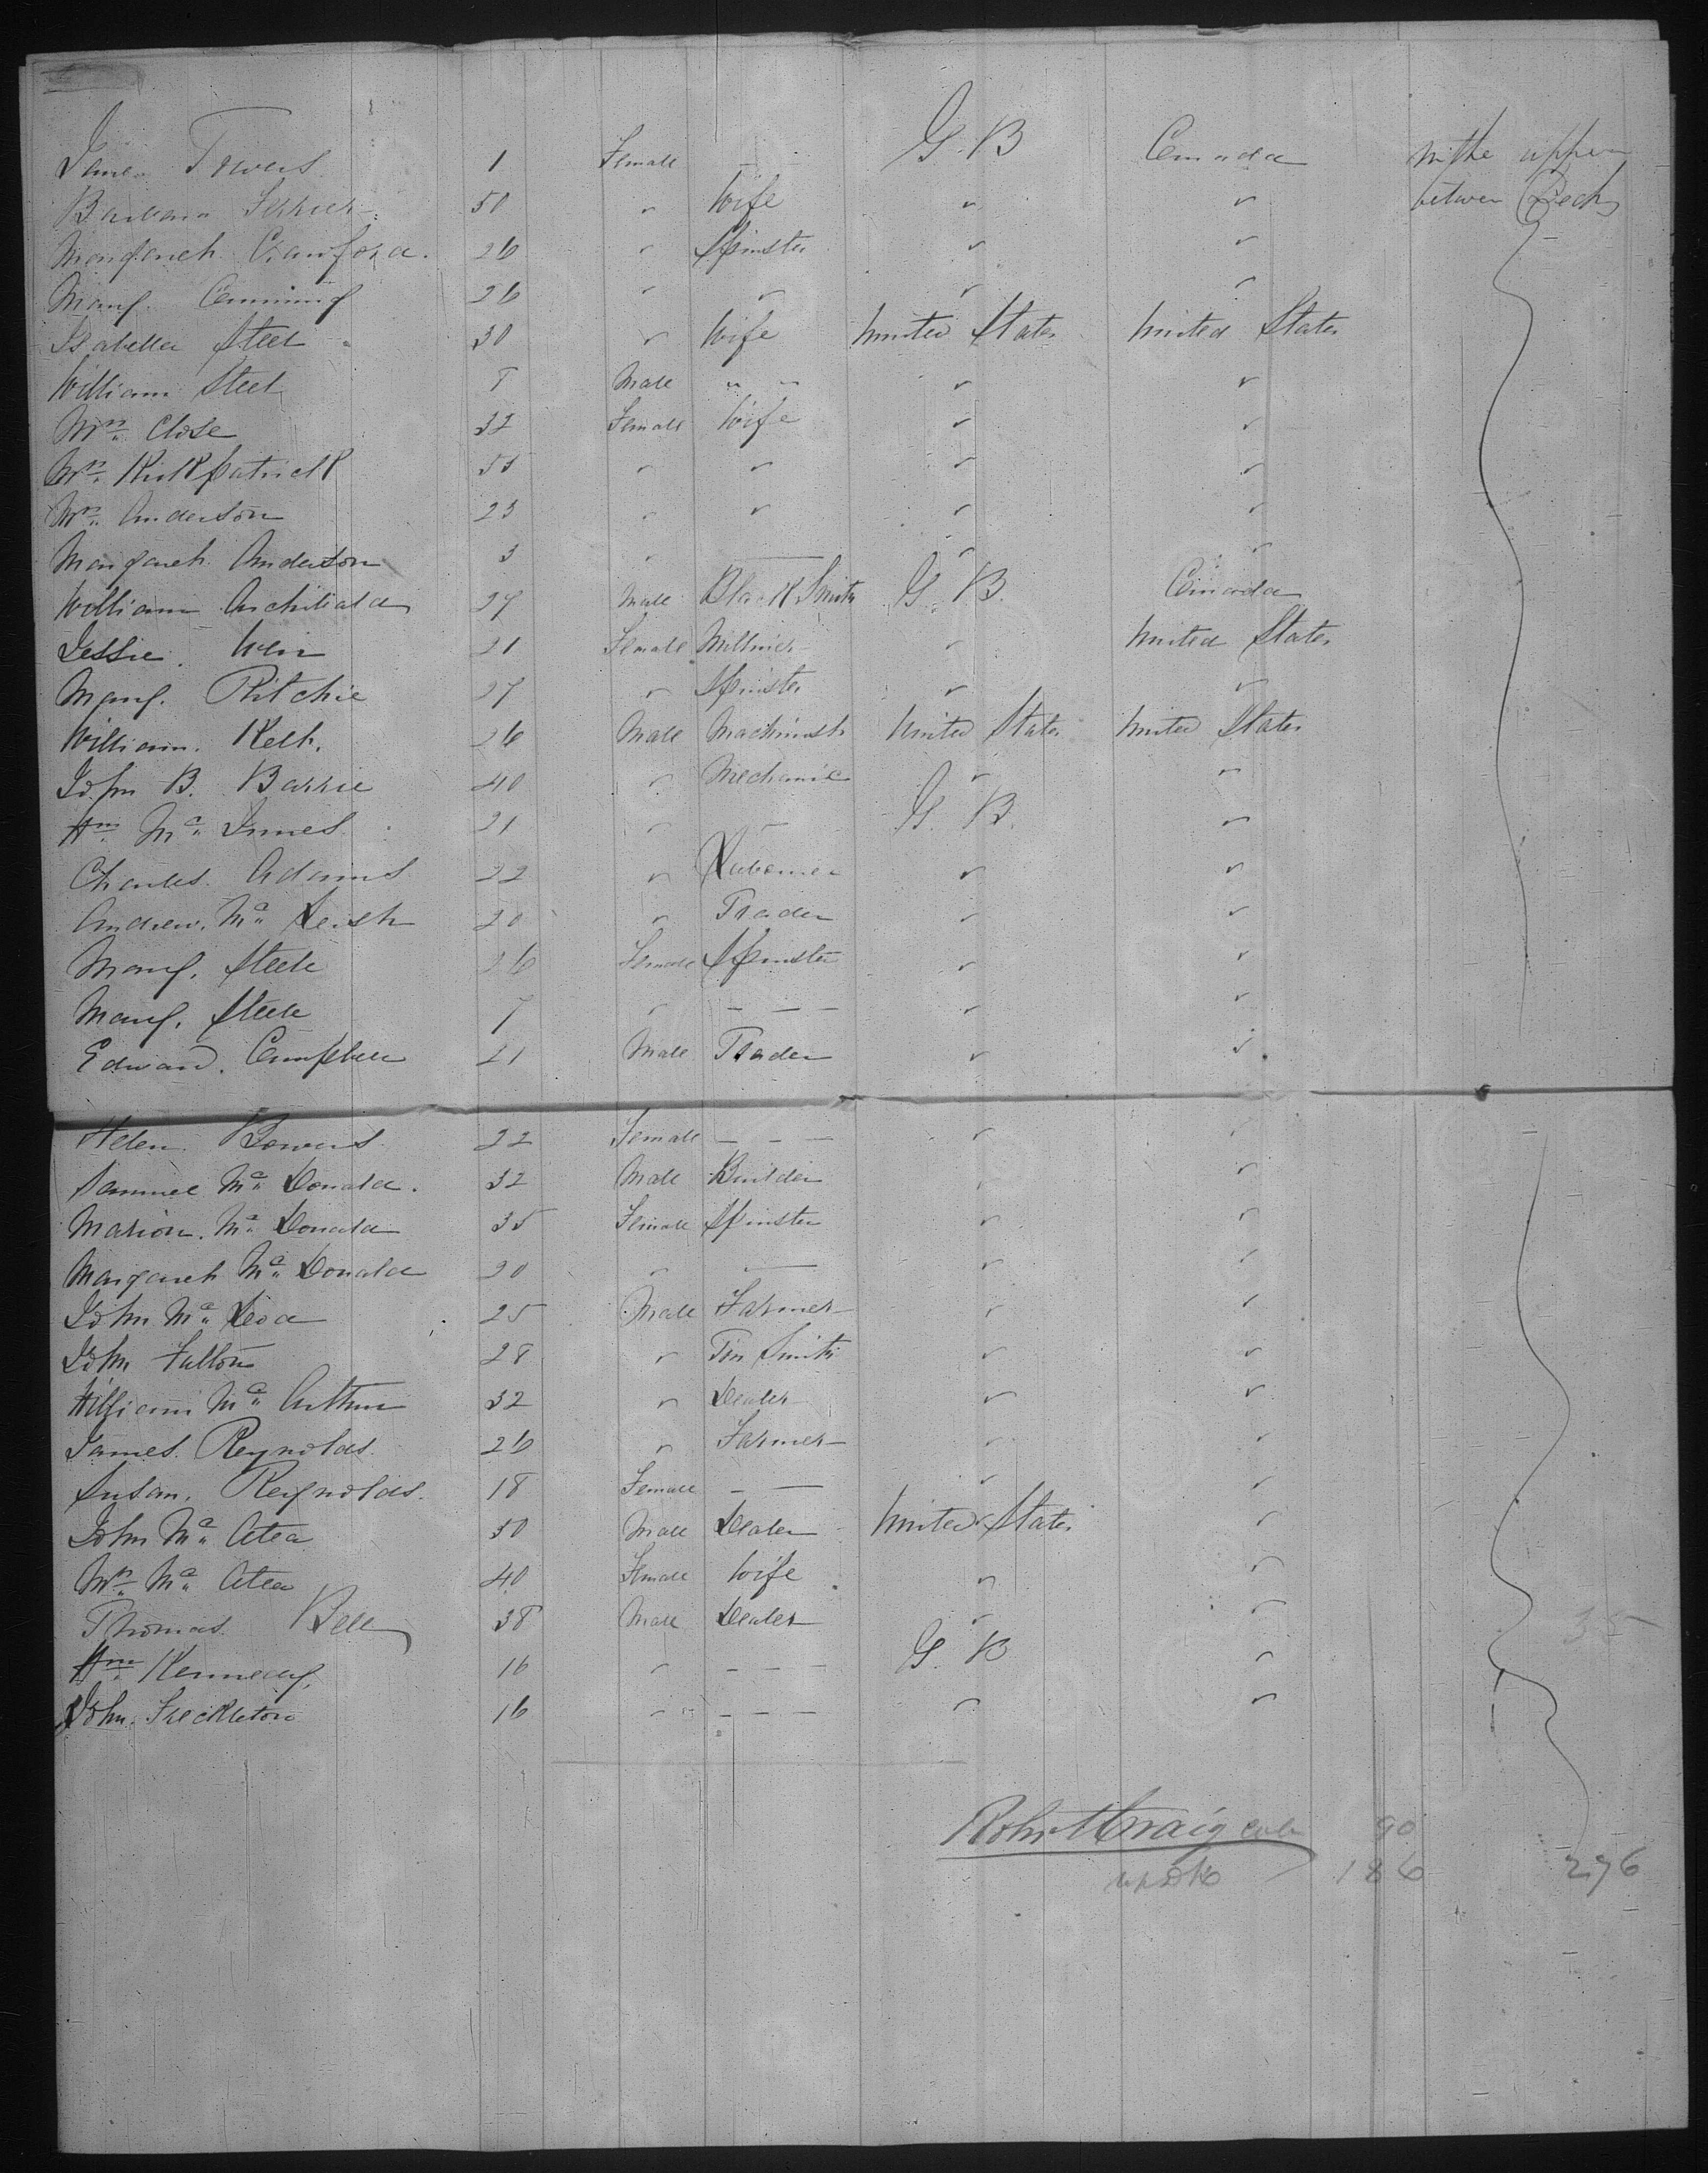 Janet Towers 1 Female — G. B Canada in the upper
Barbara Ferrier 50 " Wife " " between Decks
Margaret Crawford. 26 " Spinster " "
Marg. Cumming 26 " " " "
Isabella Steel 30 " Wife United States United States
William Steel Male " " " "
Mrs. Close 32 Female Wife " "
Mrs. Kirkpatrick 55 " " " "
Mrs. Anderson 23 " " " "
Margaret Anderson 3 " — " "
William Archibald 27 Male BlackSmith G. B. Canada
Jessie. Weir 21 Female Milliner " United States
Marg. Ritchie 27 " Spinster " "
William. Kelt. 26 Male Machinist United States United States
John B. Barrie 40 " Mechanic " "
Wm. Mc. Innes 21 " — G. B. "
Charles. Adams 22 " Labourer " "
Andrew. Mc. Leish 20 " Trader " "
Marg. Steele 26 Female Spinster " "
Marg. Steele 7 " — — — " "
Edward. Campbell 21 Male Trader " "
Helen Bowers 22 Female — — — " "
Samuel Mc. Donald. 32 Male Builder " "
Marion. Mc. Donald 35 Female Spinster " "
Margaret Mc. Donald 20 " — " "
John Mc. Leod 25 Male Farmer " "
John Fulton 28 " Tin Smith " "
William Mc. Arthur 32 " Dealer " "
James. Reynolds. 26 " Farmer " "
Susan. Reynolds. 18 Female — — " "
John Mc. Atea 50 Male Dealer United States "
Mrs. Mc. Atea 40 Female Wife " "
Thomas. Bell 38 Male Dealer " " 35
Wm. Kennedy. 16 " — — — G. B "
John. Freckleton 16 " — — — " "
Robt Craig 90
186 276